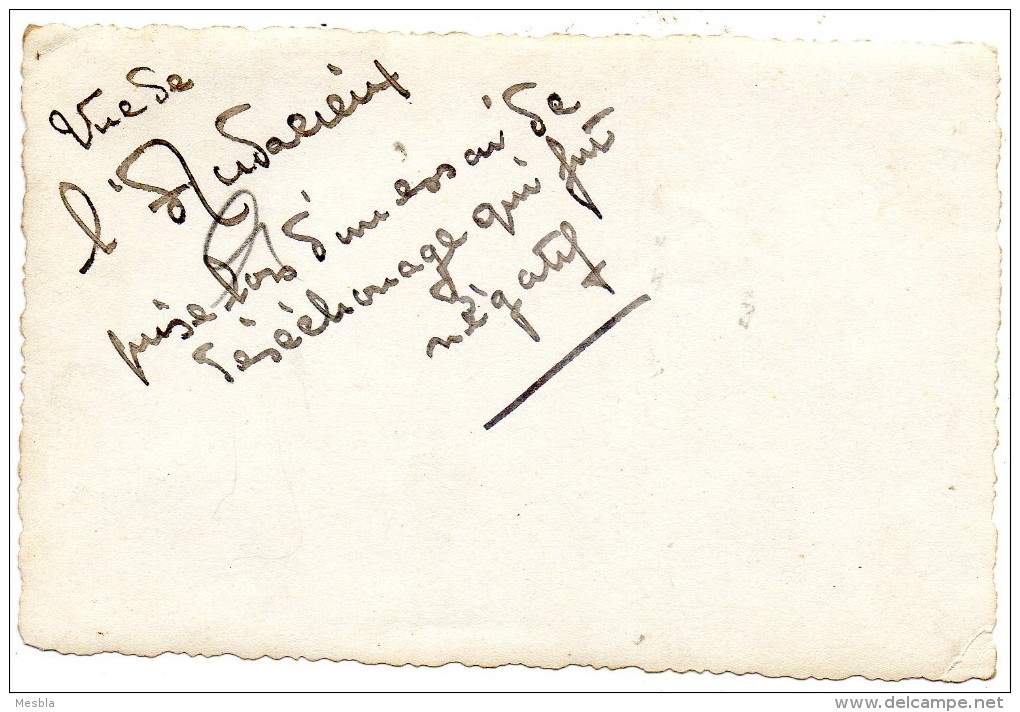 Vue de
l'Audacieux
prise lors d'un essai de
déséchouage qui fut
négatif
Mesbla
delcampe.net